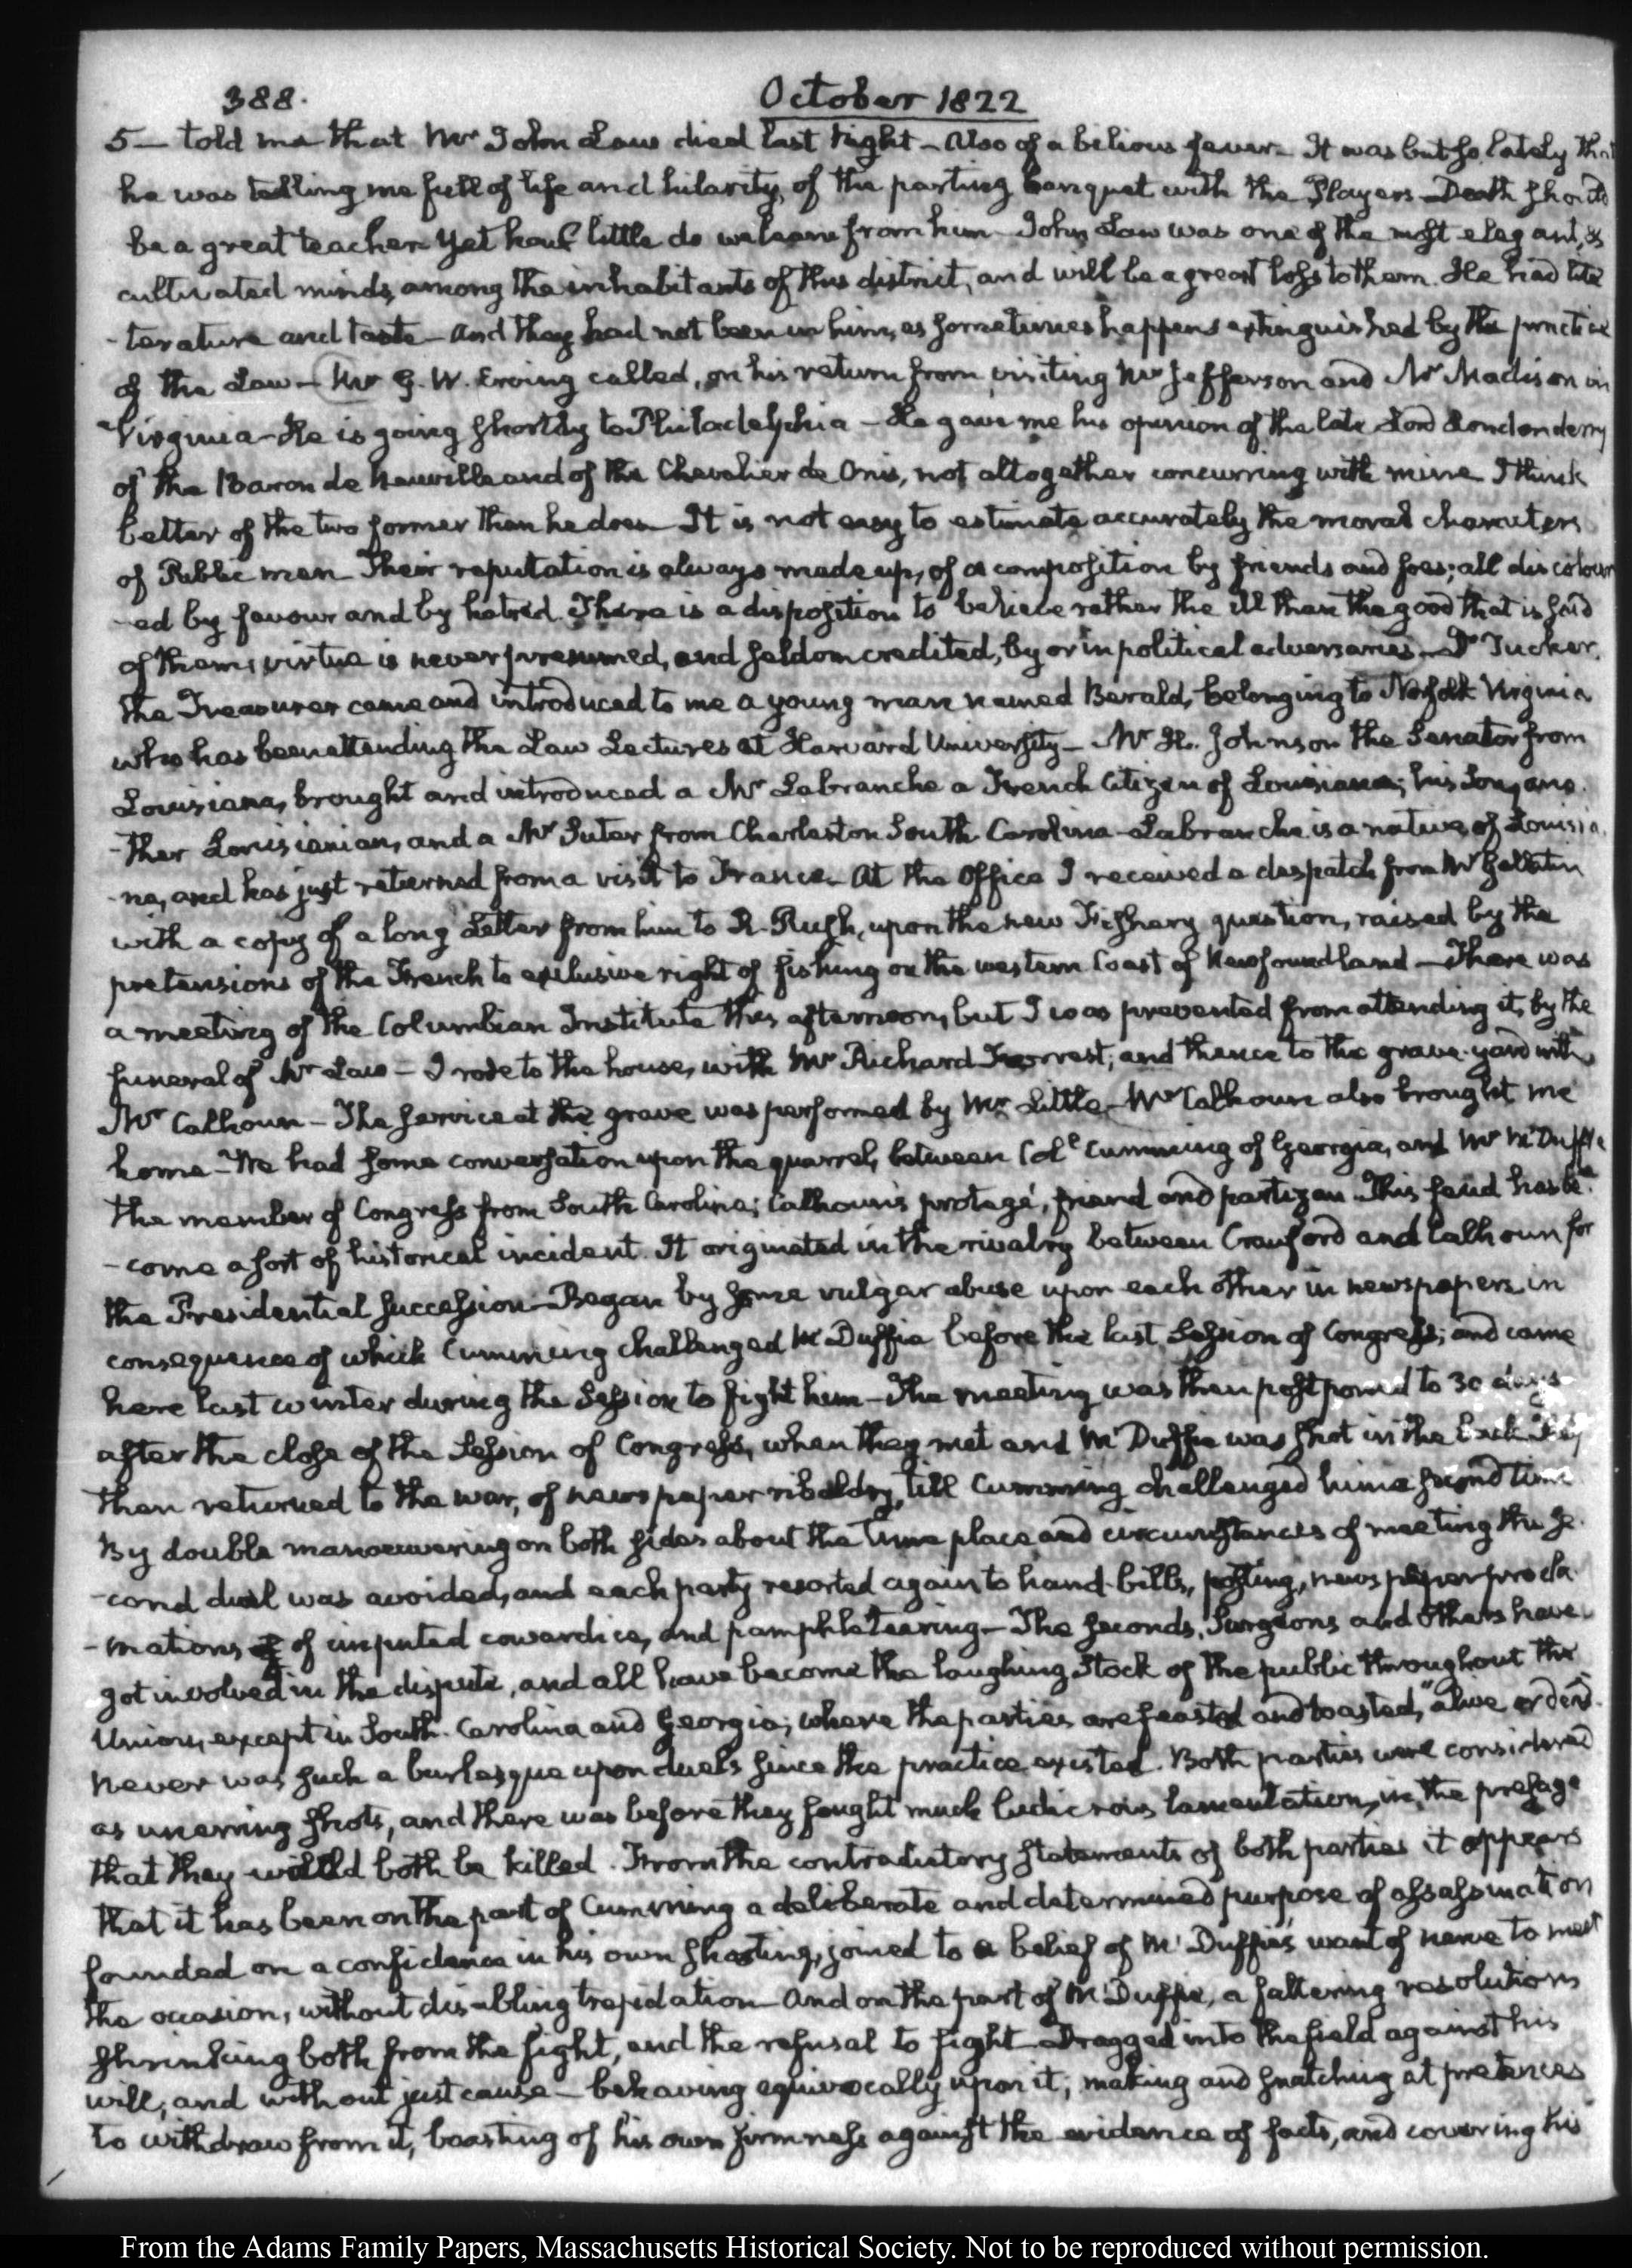 388.
October 1822
5— told me that Mr John Law died last Night — Also of a bilious fever — It was but so lately that
he was telling me full of life and hilarity, of the parting banquet with the Players — Death should
be a great teacher Yet how little do we learn from him — John Law was one of the most elegant, &
cultivated minds, among the inhabitants of this district, and will be a great loss to them. He had lite
-terature and taste — And they had not been in him, as sometimes happens extinguished by the practice
of the Law — Mr G. W. Erving called, on his return from visiting Mr Jefferson and Mr Madison in
Virginia — He is going shortly to Philadelphia — He gave me his opinion of the late Lord Londonderry
of the Baron de Neuville and of the Chevalier de Onis, not altogether concurring with mine I think
better of the two former than he does — It is not easy to estimate accurately the moral characters
of Public men — Their reputation is always made up, of a composition by friends and foes; all discolour
-ed by favour and by hatred. There is a disposition to believe rather the ill than the good that is said
of them; virtue is never presumed, and seldom credited, by or in political adversaries — Dr Tucker,
the Treasurer came and introduced to me a young man named Berald, belonging to Norfolk Virginia
who has been attending the Law Lectures at Harvard University — Mr H. Johnson the Senator from
Louisiana, brought and introduced a Mr Labranche a French Citizen of Louisiana; his Son, ano
-ther Louisianian, and a Mr Suter from Charleston South Carolina — Labranche is a native of Louisia
-na, and has just returned from a visit to France — At the Office I received a despatch from Mr Gallatin
with a copy of a long Letter from him to R. Rush, upon the new Fishery question, raised by the
pretensions of the French to exclusive right of fishing on the western Coast of Newfoundland — There was
a meeting of the Columbian Institute this afternoon, but I was prevented from attending it, by the
funeral of Mr Law — I rode to the house, with Mr Richard Forrest, and thence to the grave-yard with
Mr Calhoun — The service at the grave was performed by Mr Little — Mr Calhoun also brought me
home — We had some conversation upon the quarrel, between Coll Cumming of Georgia, and Mr McDuffie
the member of Congress from South Carolina; Calhoun's protegé, friend and partizan. This feud has be
-come a sort of historical incident. It originated in the rivalry between Crawford and Calhoun for
the Presidential succession — Began by some vulgar abuse upon each other in newspapers, in
consequence of which Cumming challenged McDuffie before the last Session of Congress; and came
here last winter during the Session to fight him — The meeting was then postponed to 30 days
after the close of the Session of Congress, when they met and McDuffie was shot in the back They
then returned to the war, of newspaper ribaldry, till Cumming challenged him a second time
By double manoeuvering on both sides about the time place and circumstances of meeting this se
-cond duel was avoided, and each party resorted again to hand-bills, posting, newspaper procla
-mations of imputed cowardice, and pamphleteering — The seconds, Surgeons and others have
got involved in the dispute, and all have become the laughing Stock of the public throughout the
Union, except in South-Carolina and Georgia; where the parties are feasted and toasted, "alive or dead"
Never was such a burlesque upon duels since the practice existed. Both parties were considered
as unerring shots, and there was before they fought much ludicrous lamentation, in the presage
that they would both be killed. From the contradictory statements of both parties it appears
that it has been on the part of Cumming a deliberate and determined purpose of assassination
founded on a confidence in his own shooting, joined to a belief of McDuffie's want of nerve to meet
the occasion, without disabling trepidation — And on the part of McDuffie, a faltering resolution
shrinking both from the fight, and the refusal to fight — Dragged into the field against his
will, and without just cause — behaving equivocally upon it; making and snatching at pretences
to withdraw from it, boasting of his own firmness against the evidence of facts, and covering his
From the Adams Family Papers, Massachusetts Historical Society. Not to be reproduced without permission.